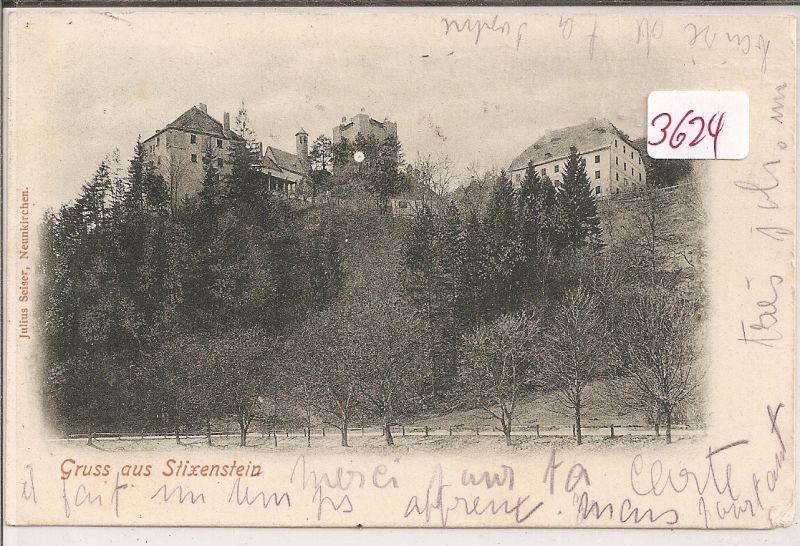 3624
Julius Seiser, Neunkirchen.
Gruss aus Stixenstein
merci pour ta carte
il fait un temps affreux. Mais pourtant
très joli,